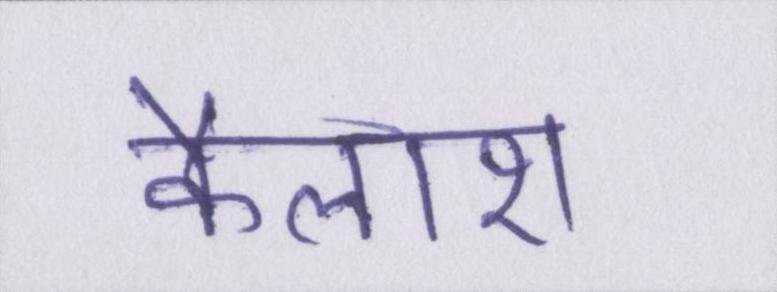 कैलाश